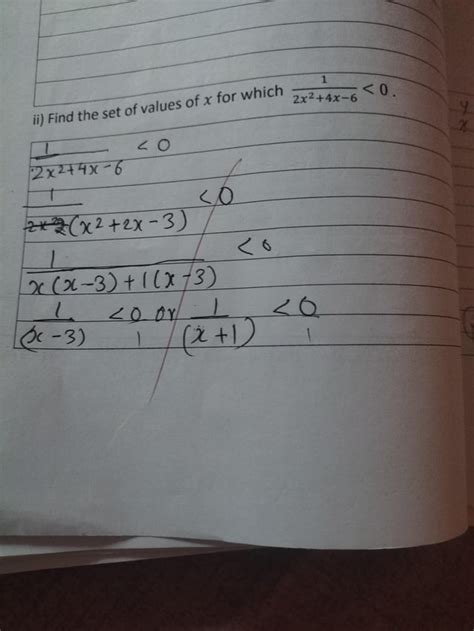 ii) Find the set of values of x for which 1/(2x²+4x−6) < 0.
1/(2x²+4x−6) < 0
1/(2(x²+2x−3)) < 0
1/(x(x−3)+1(x−3)) < 0
1/(x−3) < 0 or 1/(x+1) < 0